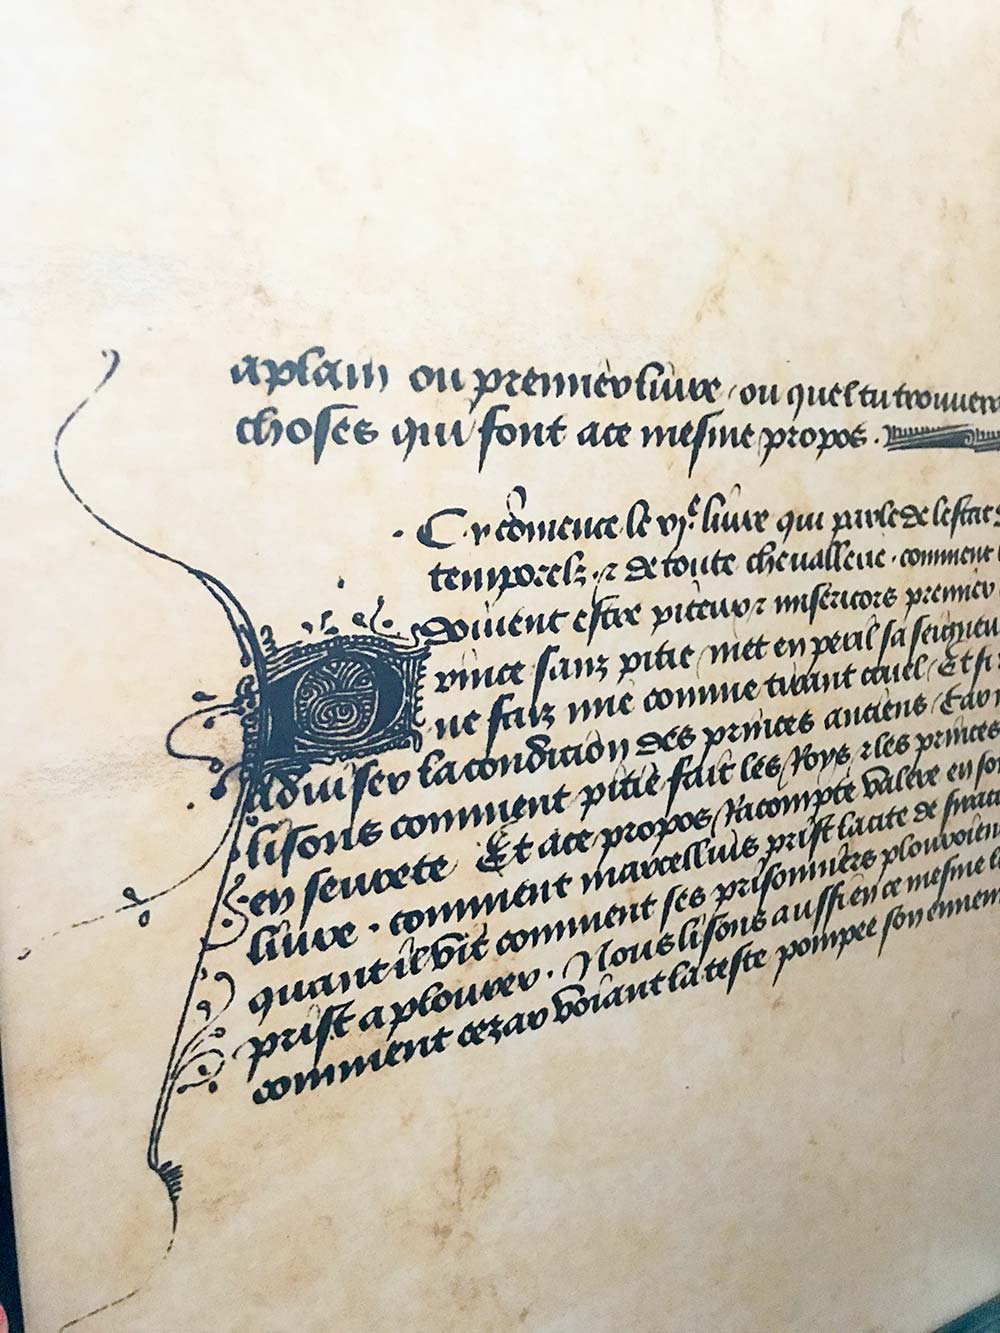 aplain ou premier liure / ou quel tu trouuera
choses qui sont a ce mesme propos.
. Cy cōmence le vjᵉ. liure qui parle de lestat
temporelz . ⁊ de toute cheuallerie . comment
doiuent estre piteux ⁊ misericors premier
Prince sanz pitie / met en peril sa seigneu
ne faiz mie comme tirant cruel / Et si
aduiser la condicion des princes anciens / Car
lisons comment pitie fait les Roys / ⁊ les princes
en seurete Et a ce propos / Racompte valere en son
liure . comment marcellius prist la cite de
quant il vit comment ses prisonniers plouroient
prist a plourer . Nous lisons aussi en ce mesme
comment cezar voiant la teste pompee son ennem